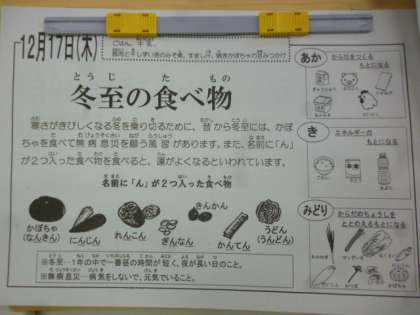 12月17日(木)
ごはん、牛乳、
とうじ た もの
冬至の食べ物
寒さがきびしくなる冬を乗り切るために、昔から冬至には、かぼ
ちゃを食べて無病息災を願う風習があります。また、名前に「ん」
が2つ入った食べ物を食べると、運がよくなるといわれています。
名前に「ん」が2つ入った食べ物
かぼちゃ
(なんきん)
にんじん
れんこん
ぎんなん
きんかん
かんてん
うどん
(うんどん)
※冬至…1年の中で一番昼の時間が短く、夜が長い日のこと。
※無病息災…病気をしないで、元気でいること。
あか
からだをつくる
もとになる
き
エネルギーの
もとになる
みどり
からだのちょうしを
ととのえるもとになる